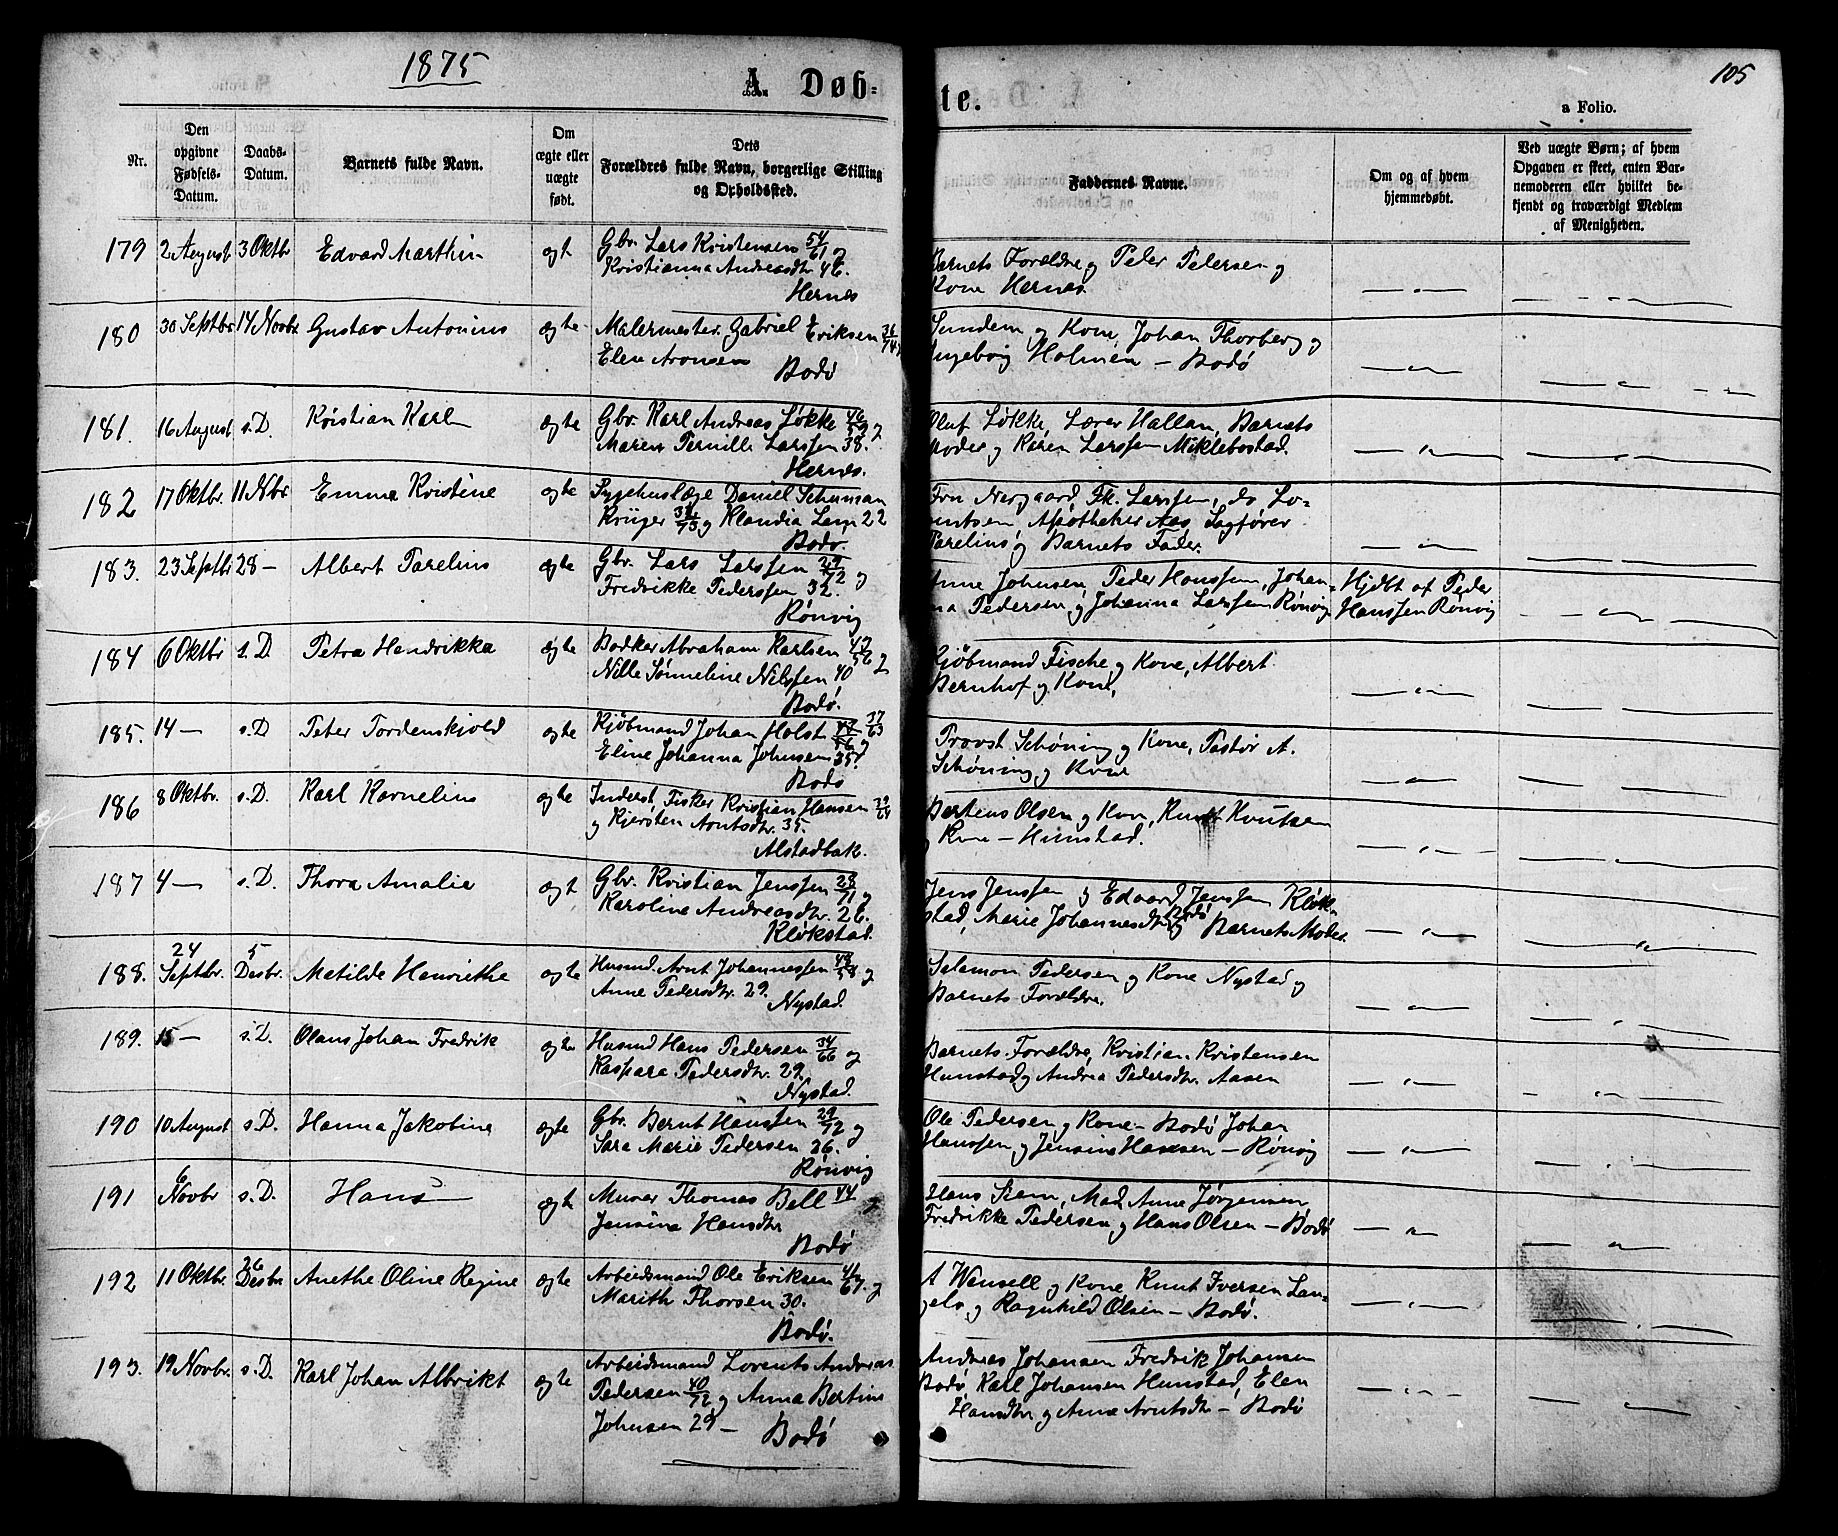 1875
A. Døb=
te.
105
a Folio.
Nr.
Den opgivne Fødsels-Datum.
Daabs-Datum.
Barnets fulde Navn.
Om ægte eller uægte født.
Dets Forældres fulde Navn, borgerlige Stilling og Opholdssted.
Faddernes Navne.
Om og af hvem hjemmedøbt.
Ved uægte Børn; af hvem Opgaven er skeet, enten Barnemoderen eller hvilket bekjendt og troværdigt Medlem af Menigheden.
179 2 August 3 Oktbr Edvard Marthin ægt Gbr. Lars Kristensen 54/61 og
Kristianna Andreasdtr 46.
Hernes
Barnets Forældre og Peter Petersen og
Kone Hernes.
180 30 Septbr 14 Novbr. Gustav Antonius ægte Malermester Gabriel Eriksen 36/74
Elen Aronsen
Bodø
Sundem og Kone, Johan Thorberg og
Ingeborg Holmen — Bodø
181. 16 August s.D. Kristian Karl ægte Gbr. Karl Andreas Løkke 46/59 og
Maren Pernille Larssen 38.
Hernes.
Oluf Løkke, Lærer Hallan, Barnets
Moder og Karen Larssen Miklebostad.
182 17 Oktbr. 11 Nbr. Emma Kristine ægte Sygehuslæge Daniel Schuman
Krüger og Klandia Lam 22
Bodø.
Fru Nergaard, Fr. Larssen, do Lo-
rntsen, Apotheker Aas, Sagfører
Parelius og Barnets Fader.
183. 23 Septbr 28 — Albert Parelius ægte Gbr. Lars Larssen 29/72 og
Fredrikke Pederssen 32.
Rønvig
Anne Johnsen, Peder Hanssen, Johan-
na Pedersen og Johanna Larssen Rønvig
Hjdbt af Peder
Hanssen Rønvig
184 6 Oktbr s.D. Petra Hendrikka ægte Bødker Abraham Karlsen 47/56 og
Nille Sønneline Nilssen 40
Bodø.
Kjøbmand Fische og Kone, Albert
Bernhof og Kone,
185. 14 — s.D Peter Tordenskjold ægte Kjøbmand Johan Holst 37/63
Eline Johanna Johnsen 35
Bodø
Provst Schøning og Kone, Pastor A.
Schøning og Kone
186 8 Oktbr. s.D. Karl Kornelius ægte Inderst, Fisker Kristian Hansen 39/64
og Kjersten Arntsdtr. 35.
Alstadbak.
Bertens Olsen og Kone, Knut Knutsen
og Kone — Hunstad.
187 4 — s.D. Thora Amalie ægt Gbr. Kristian Jenssen 28/71 og
Karoline Andreasdtr. 26.
Kløkstad.
Jens Jenssen og Edvard Jenssen Kløk-
stad, Marie Johannesdtr Bodø og Barnets Moder.
188. 24 Septbr. 5 Desbr. Matilde Henriethe ægte Husmd. Arnt Johannessen 48/58 og
Anne Pedersdtr. 29.
Nystad.
Salamon Pedersen og Kone Nystad og
Barnets Forældre.
189. 15 — s.D. Olaus Johan Fredrik ægte Husmd Hans Pedersen 34/66 og
Kaspara Pedersdtr. 29.
Nystad.
Barnets Forældre, Kristian Kristensen
Hunstad og Andrea Pedersdtr. Aasen
190 10 August s.D. Hanna Jakobine ægte Gbr. Bernt Hanssen 29/72 og
Sara Marie Pedersen 26.
Rønvig
Ole Pedersen og Kone — Bodø Johan
Hanssen og Jensine Hansen — Rønvig
191 6 Novbr s.D. Hans ægte Murer Thomas Bell 44
Jensine Hansdtr
Bodø
Hans Skam, Mad. Anne Jørgensen
Fredrikke Pedersen og Hans Olsen — Bodø
192 11 Oktbr. 26 Desbr Anethe Oline Regine ægte Arbeidsmand Ole Eriksen 41/67. og
Marith Thorsen 30.
Bodø.
A Wensell og Kone, Knut Iversen Lan-
gelo og Ragnhild Olsen — Bodø.
193. 19 Novbr. s.D. Karl Johan Albrikt ægte Arbeidsmand Lorents Andreas
Pedersen 40/72 og Anna Bertine
Johnsen 29 —
Bodø
Andreas Johansen Fredrik Johansen
Bodø, Karl Johansen Hunstad, Elen
Hansdtr og Anna Arntsdtr — Bodø